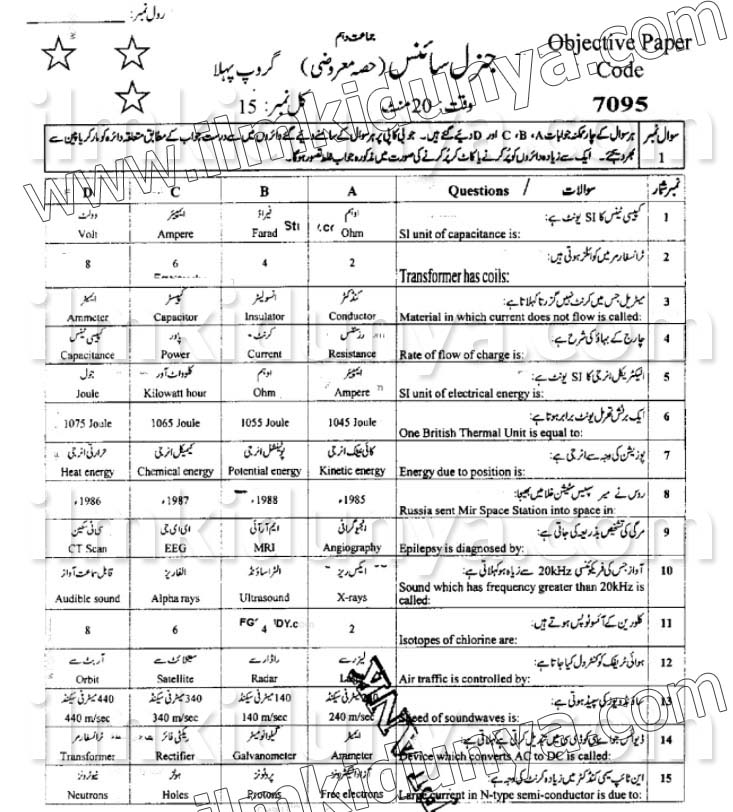 رول نمبر:
جماعت دہم
جنرل سائنس (حصہ معروضی) گروپ پہلا
Objective Paper
Code
7095
وقت: 20 منٹ کل نمبر: 15
سوال نمبر 1
ہر سوال کے چار ممکنہ جوابات A، B، C اور D دیئے گئے ہیں۔ جوابی کاپی پر ہر سوال کے سامنے دیئے گئے دائروں میں سے درست جواب کے مطابق متعلقہ دائرہ کو مارکر یا پین سے
بھر دیجئے۔ ایک سے زیادہ دائروں کو پُر کرنے یا کاٹ کر پُر کرنے کی صورت میں مذکورہ جواب غلط تصور ہوگا۔
نمبر شمار سوالات / Questions A B C D
1 کپیسی ٹینس کا SI یونٹ ہے: اوہم فیراڈ ایمپیئر وولٹ
SI unit of capacitance is: Ohm Farad Ampere Volt
2 ٹرانسفارمر میں کوائلز ہوتی ہیں:
Transformer has coils: 2 4 6 8
3 میٹریل جس میں کرنٹ نہیں گزرتا کہلاتا ہے: کنڈکٹر انسولیٹر کپیسٹر ایمیٹر
Material in which current does not flow is called: Conductor Insulator Capacitor Ammeter
4 چارج کے بہاؤ کی شرح ہے: رزسٹنس کرنٹ پاور کپیسی ٹینس
Rate of flow of charge is: Resistance Current Power Capacitance
5 الیکٹریکل انرجی کا SI یونٹ ہے: ایمپیئر اوہم کلوواٹ آور جول
SI unit of electrical energy is: Ampere Ohm Kilowatt hour Joule
6 ایک برٹش تھرمل یونٹ برابر ہوتا ہے:
One British Thermal Unit is equal to: 1045 Joule 1055 Joule 1065 Joule 1075 Joule
7 پوزیشن کی وجہ سے انرجی ہے: کائی نیٹک انرجی پوٹینشل انرجی کیمیکل انرجی حرارتی انرجی
Energy due to position is: Kinetic energy Potential energy Chemical energy Heat energy
8 روس نے میر سپیس سٹیشن خلا میں بھیجا:
Russia sent Mir Space Station into space in: 1985ء 1988ء 1987ء 1986ء
9 مرگی کی تشخیص بذریعہ کی جاتی ہے: انجیوگرافی ایم آر آئی ای ای جی سی ٹی سکین
Epilepsy is diagnosed by: Angiography MRI EEG CT Scan
10 آواز جس کی فریکوئنسی 20kHz سے زیادہ ہو کہلاتی ہے: ایکس ریز الٹراساؤنڈ الفا ریز قابل سماعت آواز
Sound which has frequency greater than 20kHz is
called: X-rays Ultrasound Alpha rays Audible sound
11 کلورین کے آئسوٹوپس ہوتے ہیں:
Isotopes of chlorine are: 2 4 6 8
12 ہوائی ٹریفک کو کنٹرول کیا جاتا ہے: لیزر سے راڈار سے سیٹلائٹ سے آربٹ سے
Air traffic is controlled by: Radar Satellite Orbit
13 ساؤنڈ ویوز کی سپیڈ ہوتی ہے: 140 میٹر فی سیکنڈ 340 میٹر فی سیکنڈ 440 میٹر فی سیکنڈ
Speed of soundwaves is: 240 m/sec 140 m/sec 340 m/sec 440 m/sec
14 ڈیوائس جو اے سی کو ڈی سی میں تبدیل کرتی ہے کہلاتی ہے: ایمیٹر گیلوانومیٹر ریکٹی فائر ٹرانسفارمر
Device which converts AC to DC is called: Ammeter Galvanometer Rectifier Transformer
15 این ٹائپ سیمی کنڈکٹر میں زیادہ کرنٹ کی وجہ ہے: آزاد الیکٹرونز پروٹونز ہولز نیوٹرونز
Large current in N-type semi-conductor is due to: Free electrons Protons Holes Neutrons
www.ilmkidunya.com
ilmkidunya.com